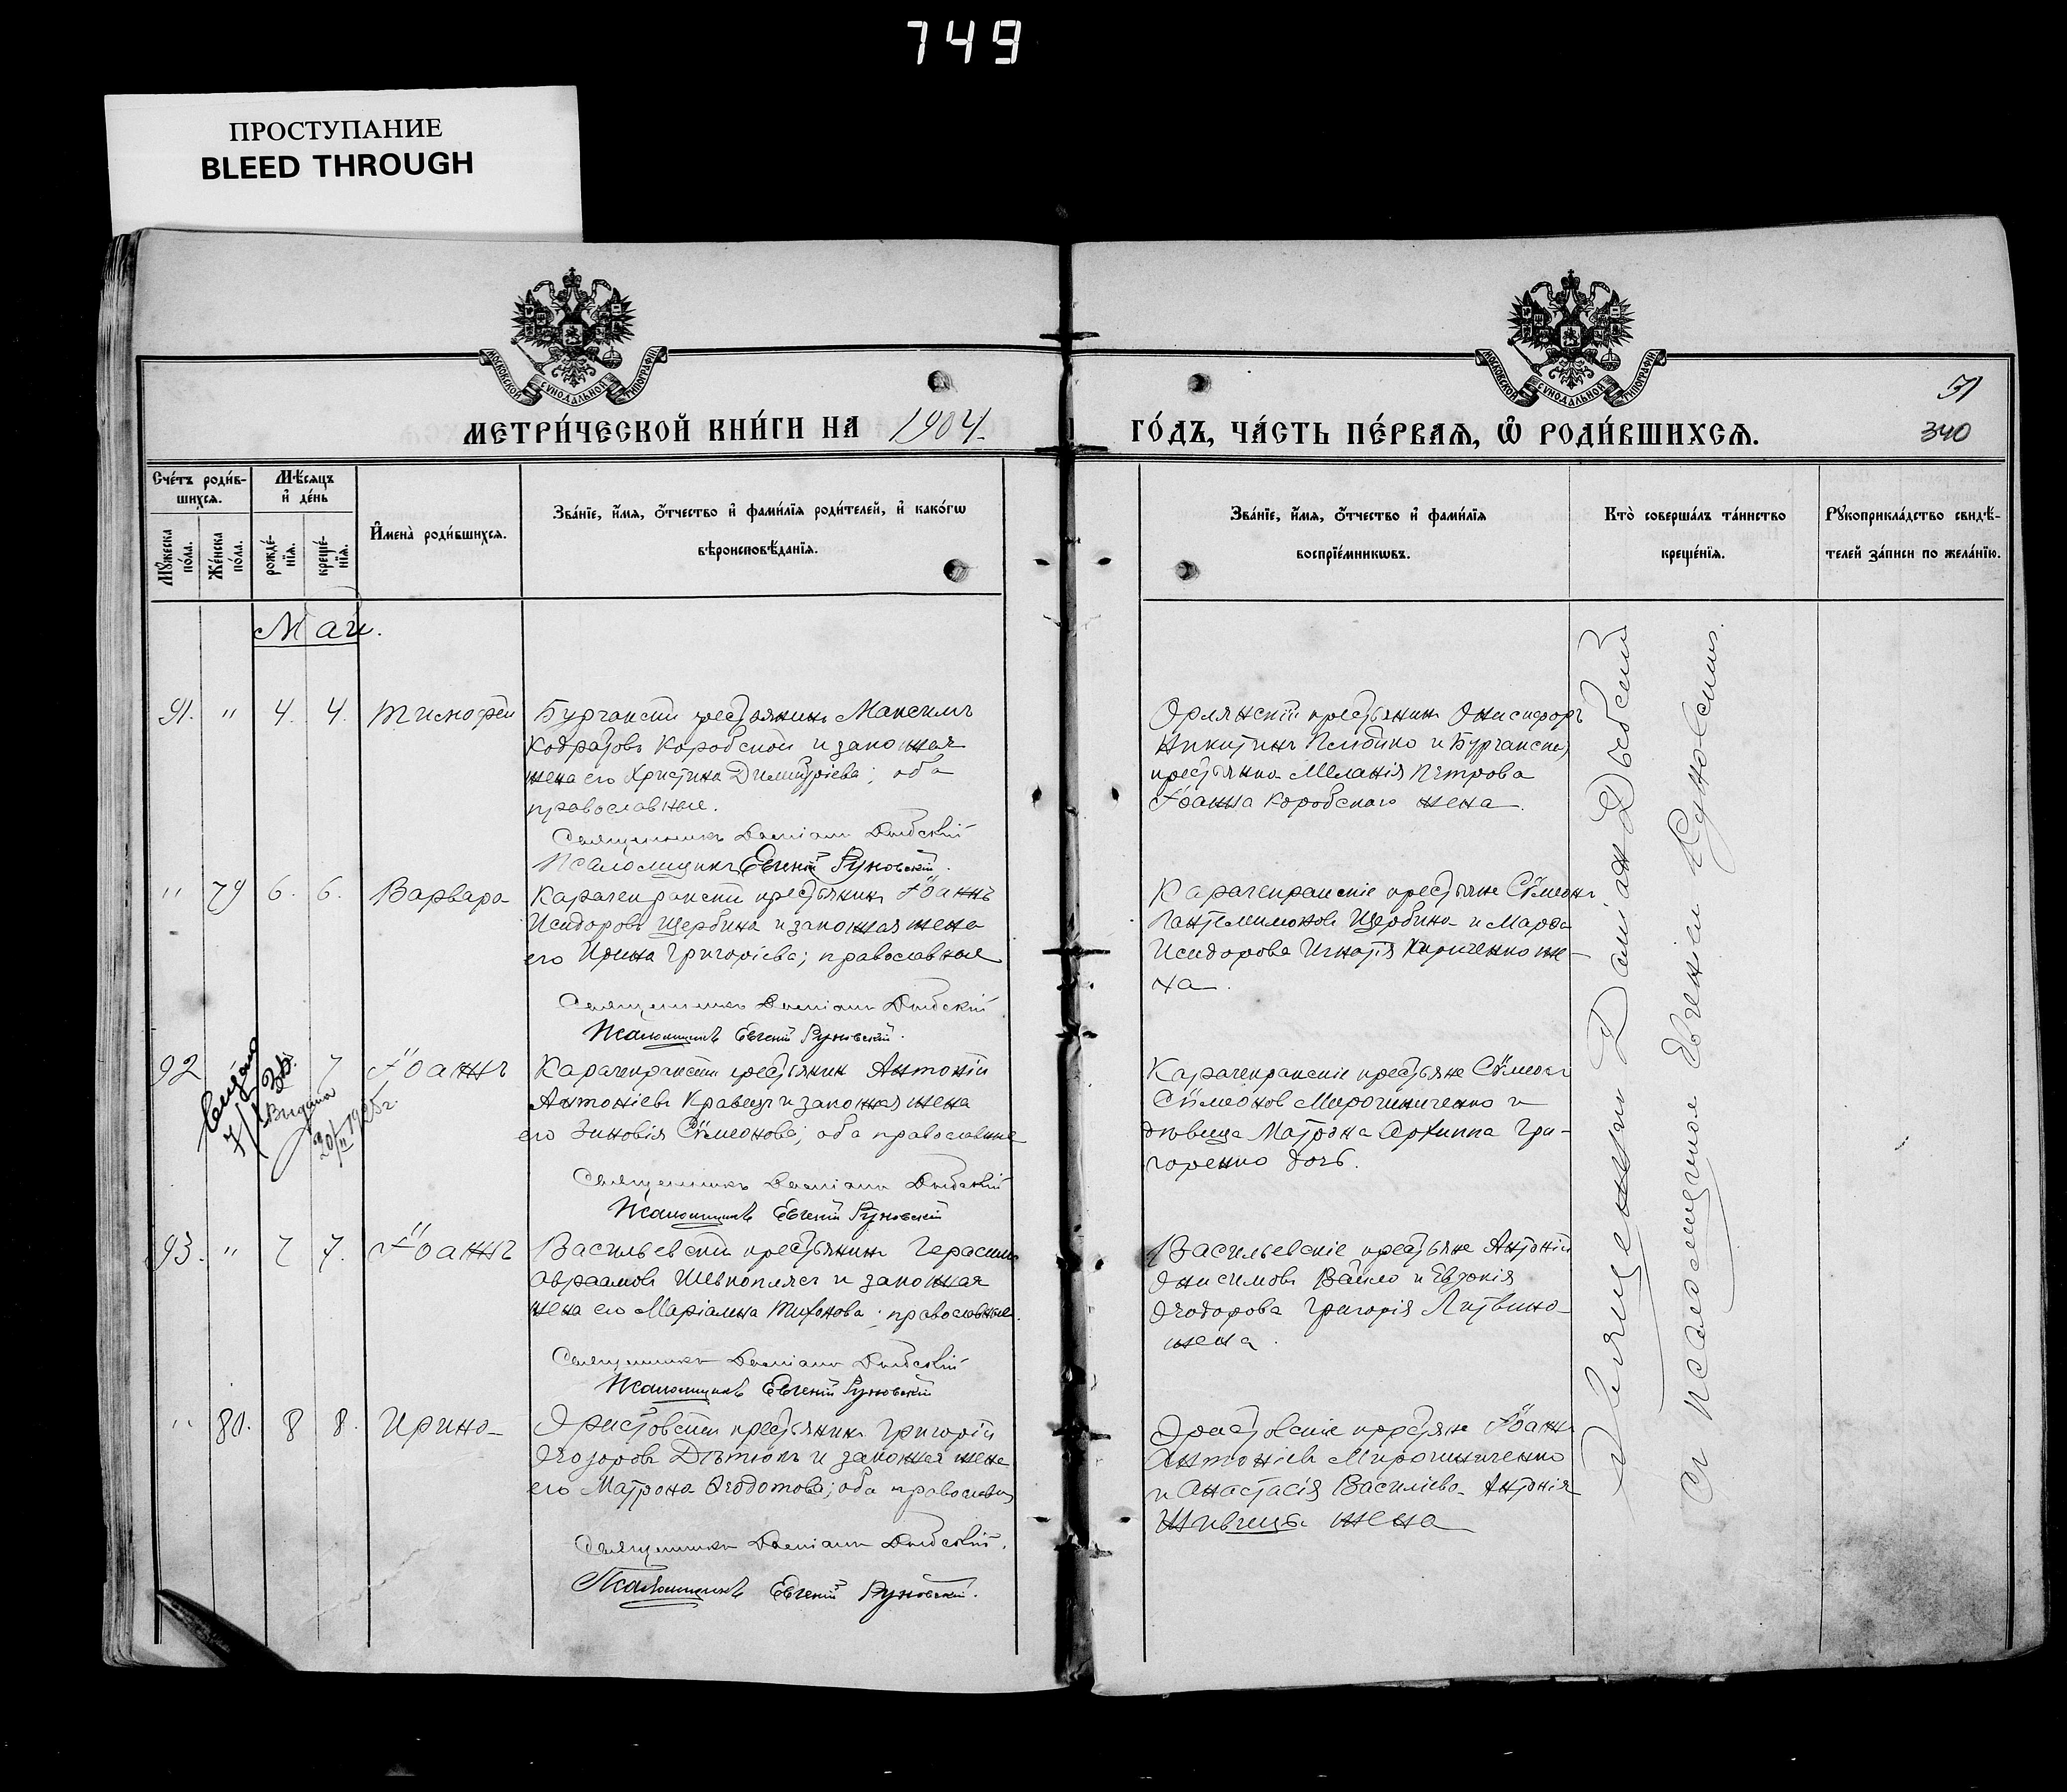 749
ПРОСТУПАНИЕ
BLEED THROUGH
МОСКОВСКОЙ СѴНОДАЛЬНОЙ ТИПОГРАФІИ
МОСКОВСКОЙ СѴНОДАЛЬНОЙ ТИПОГРАФІИ
МЕТРИ́ЧЕСКОЙ КНИ́ГИ НА 1904.
ГО́ДЪ, ЧА́СТЬ ПЕ́РВАѦ, Ѡ҆ РОДИ́ВШИХСѦ.
340
Сче́тъ роди́в-
шихсѧ.
Мꙋ́жеска по́ла.
Же́нска по́ла.
Мѣ́сѧцъ и҆ де́нь
рожде́-нїѧ.
креще́-нїѧ.
И҆мена̀ роди́вшихсѧ.
Зва́нїе, и҆́мѧ, ѻ҆́тчество и҆ фами́лїѧ роди́телей, и҆ како́гѡ
вѣроисповѣ́данїѧ.
Зва́нїе, и҆́мѧ, ѻ҆́тчество и҆ фами́лїѧ
воспрїе́мникѡвъ.
Кто̀ соверша́лъ та́инство
креще́нїѧ.
Рꙋкоприкла́дство свидѣ́-
телей за́писи по жела́нїю.
Май.
91. " 4. 4. Тимофей
Бурганскій крестьянинъ Максимъ
Кодратовъ Коробской и законная
жена его Христина Димитріева; оба
православные.
Священникъ Даміанъ Дубскій
Псаломщикъ Евгеній Руновскій.
Орлянскій крестьянинъ Онисифоръ
Никитинъ и Бурганская
крестьянка Меланія Петрова
Іоанна Коробскаго жена.
" 79 6. 6. Варвара
Карачекракскій крестьянинъ Іоаннъ
Исидоровъ Щербина и законная жена
его Ирина Григоріева; православные
Священникъ Даміанъ Дубскій
Псаломщикъ Евгеній Руновскій.
Карачекракскіе крестьяне Сѵмеонъ
Пантелимоновъ Щербина и Марѳа
Исидорова Игнатія Кириченко же-
на.
92 7 Іоаннъ
Карачекракскій крестьянинъ Антоній
Антоніевъ Кравецъ и законная жена
его Зиновія Сѵмеонова; оба православные
Священникъ Даміанъ Дубскій
Псаломщикъ Евгеній Руновскій
Карачекракскіе крестьяне Сѵмеонъ
Сѵмеоновъ Мирошниченко и
дѣвица Матрона Архиппа Гри-
горенко дочь.
93. " 7 7. Іоаннъ
Васильевскій крестьянинъ Герасимъ
Авраамовъ Шевкоплясъ и законная
жена его Маріамна Тихонова; православные.
Священникъ Даміанъ Дубскій
Псаломщикъ Евгеній Руновскій
Васильевскіе крестьяне Антоній
Онисимовъ Вайло и Евдокія
Ѳеодорова Григорія Литвина
жена.
" 80. 8 8. Ирина
Эристовскій крестьянинъ Григорій
Ѳеодоровъ Дѣтюкъ и законная жена
его Матрона Ѳеодотова; оба православн
Священникъ Даміанъ Дубскій.
Псаломщикъ Евгеній Руновскій.
Эристовскіе крестьяне Іоаннъ
Антоніевъ Мирошниченко
и Анастасія Василіева Антонія
жена
Священникъ Даміанъ Дубскій
съ псаломщикомъ Евгеніемъ Руновскимъ.